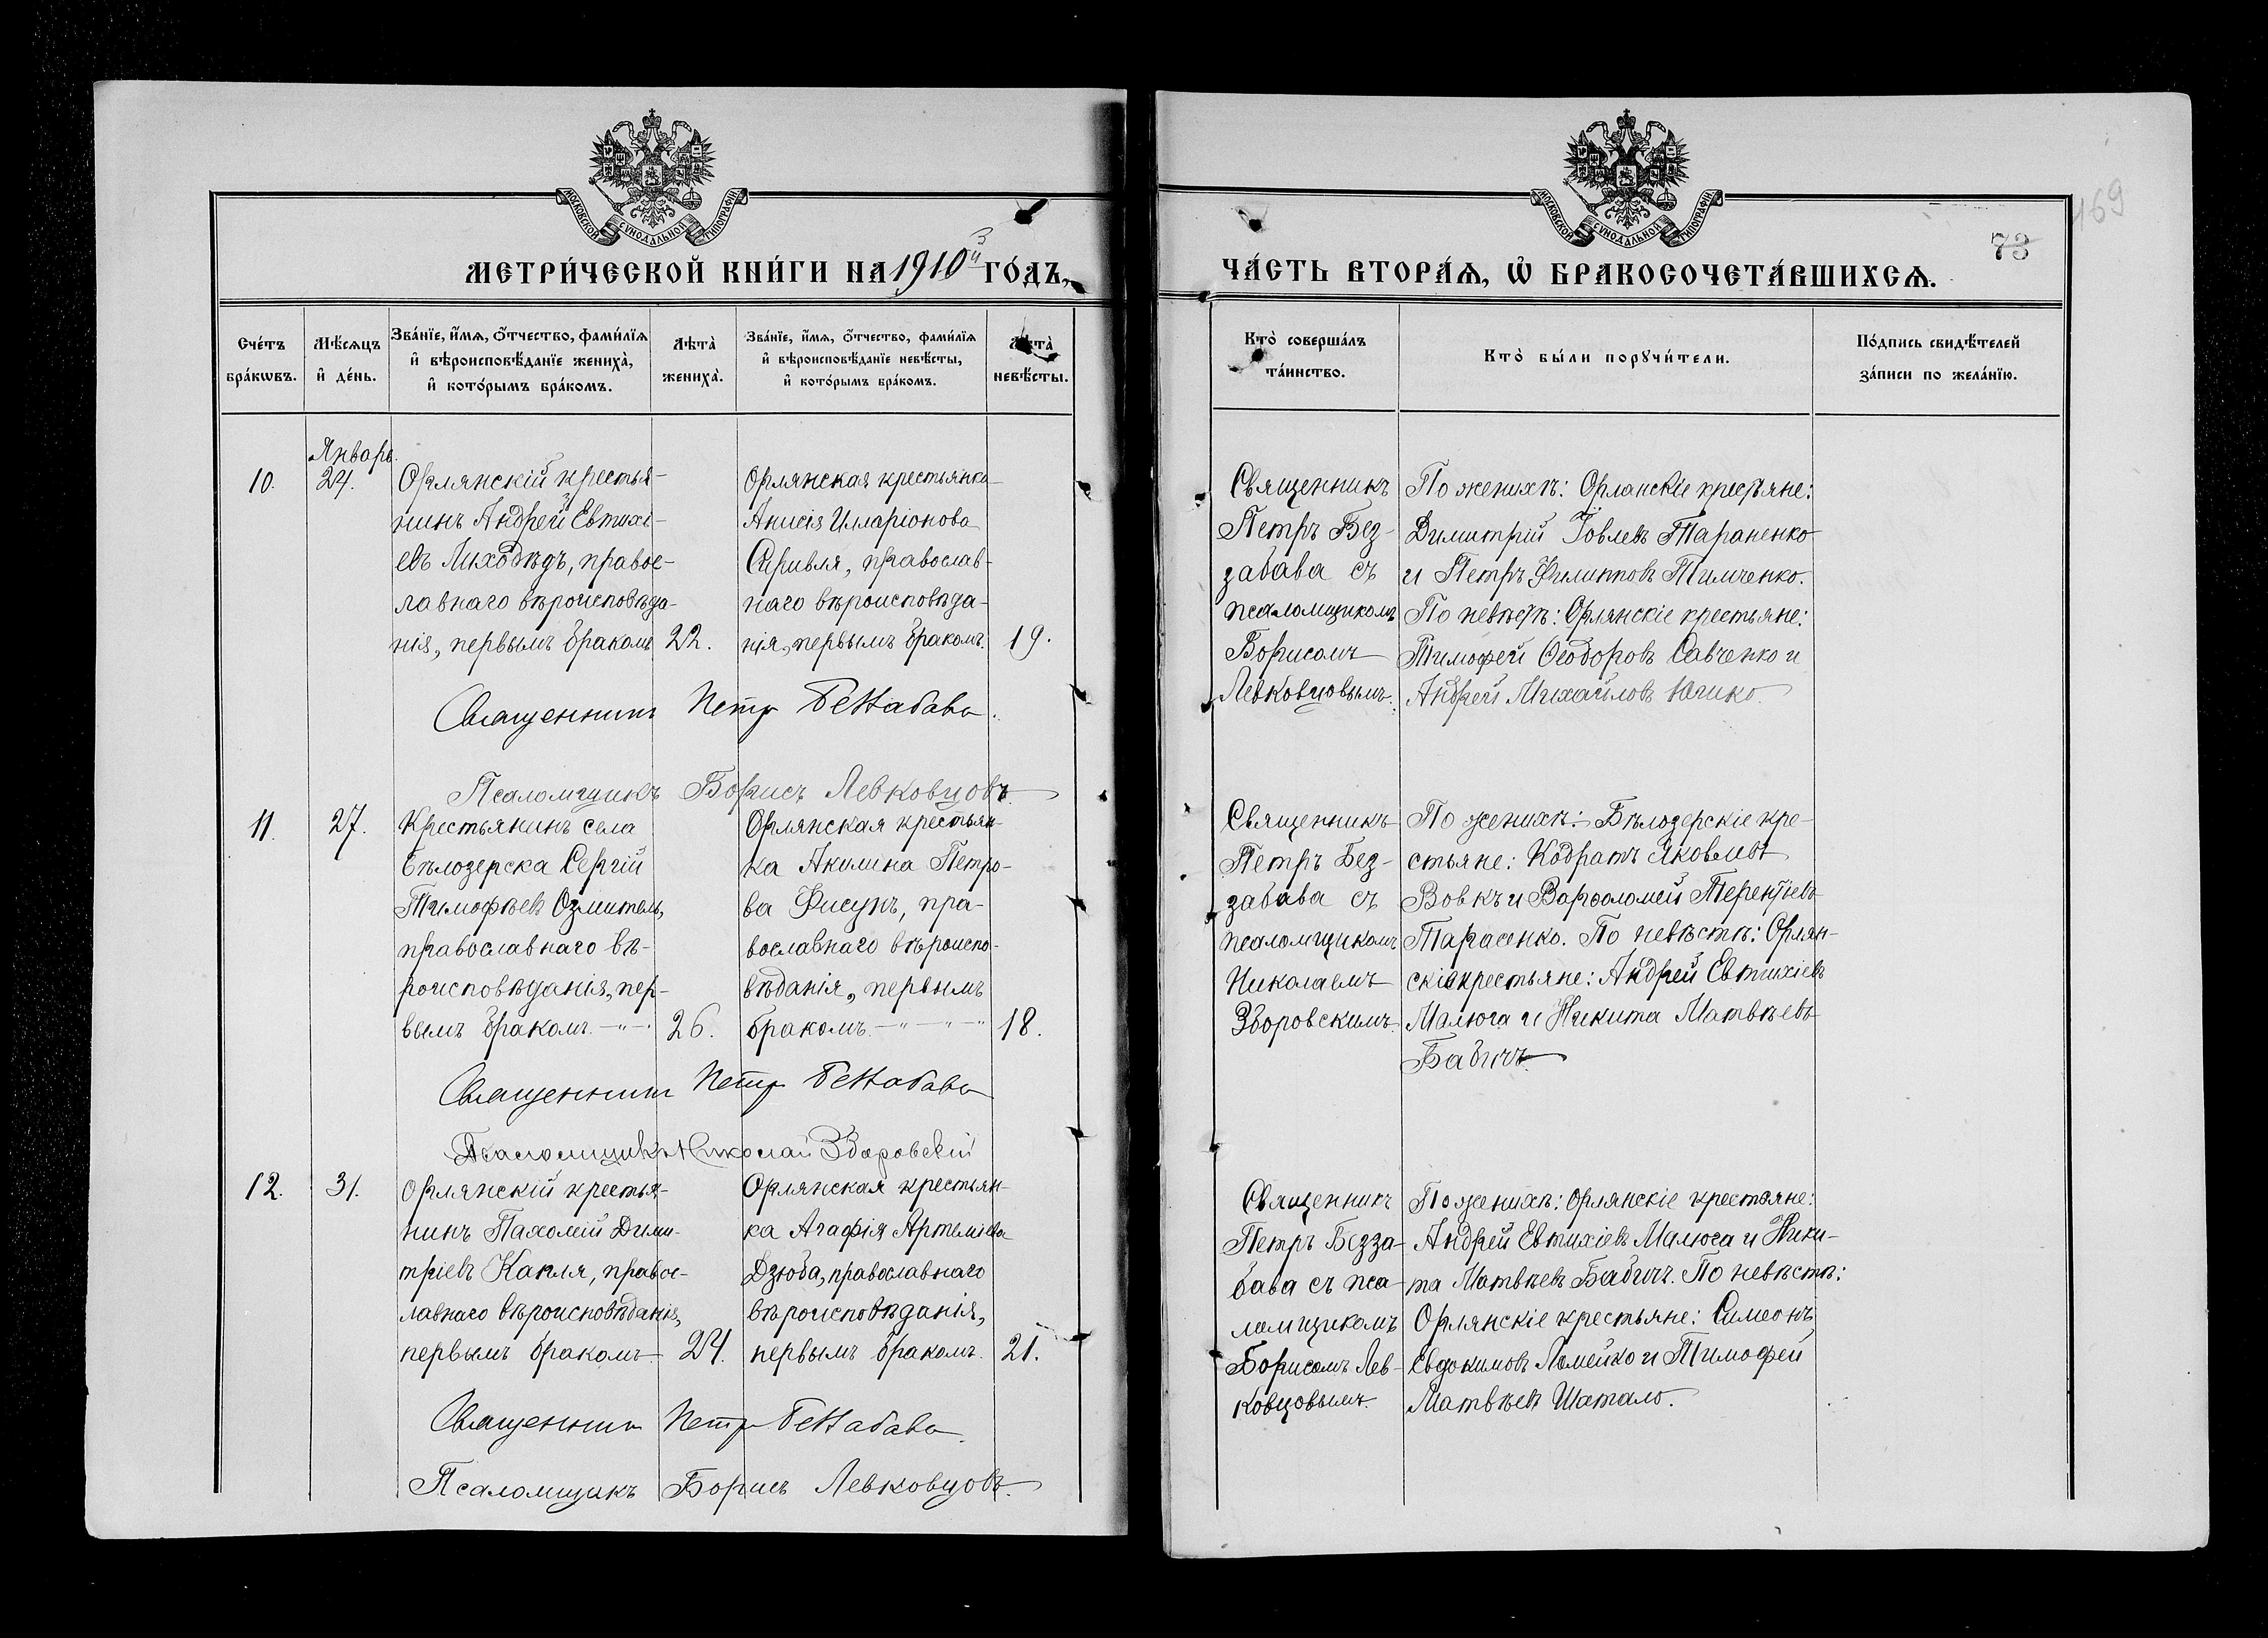 МОСКОВСКОЙ СѴНОДАЛЬНОЙ ТИПОГРАФІИ
МЕТРИ́ЧЕСКОЙ КНИ́ГИ НА 1910й ГО́ДЪ,
Сче́тъ бра́кѡвъ.
Мѣ́сѧцъ и҆ де́нь.
Зва́нїе, и҆́мѧ, ѻ҆́тчество, фами́лїѧ и҆ вѣроисповѣ́данїе жениха̀, и҆ кото́рымъ бра́комъ.
Лѣта̀ жениха̀.
Зва́нїе, и҆́мѧ, ѻ҆́тчество, фами́лїѧ и҆ вѣроисповѣ́данїе невѣ́сты, и҆ кото́рымъ бра́комъ.
Лѣта̀ невѣ́сты.
10.
Январь.
24.
Орлянскій крестья-
нинъ Андрей Евтихі-
евъ Лиходѣдъ, правос-
лавнаго вѣроисповѣда-
нія, первымъ бракомъ
22.
Орлянская крестьянка
Анисія Иларіонова
православ-
наго вѣроисповѣда-
нія, первымъ бракомъ.
19.
Священникъ Петръ Беззабава.
Псаломщикъ Борисъ Левковцовъ.
11.
27.
Крестьянинъ села
Бѣлозерска Сергій
Тимофѣевъ Озмитель,
православнаго вѣ-
роисповѣданія, пер-
вымъ бракомъ. —"—
26.
Орлянская крестьян-
ка Акилина Петро-
ва Фисунъ, пра-
вославнаго вѣроиспо-
вѣданія, первымъ
бракомъ. —"—"—"
18.
Священникъ Петръ Беззабава
Псаломщикъ Николай Зборовскій
12.
31.
Орлянскій крестья-
нинъ Пахомій Дими-
тріевъ Капля, правос-
лавнаго вѣроисповѣданія,
первымъ бракомъ.
24.
Орлянская крестьян-
ка Агафія Артеміева
Дзюба, православнаго
вѣроисповѣданія,
первымъ бракомъ.
21.
Священникъ Петръ Беззабава.
Псаломщикъ Борисъ Левковцовъ.
МОСКОВСКОЙ СѴНОДАЛЬНОЙ ТИПОГРАФІИ
169
73
ЧА́СТЬ ВТОРА́Ѧ, Ѡ҆ БРАКОСОЧЕТА́ВШИХСѦ.
Кто̀ соверша́лъ та́инство.
Кто̀ бы́ли порꙋчи́тели.
По́дпись свидѣ́телей за́писи по жела́нїю.
Священникъ
Петръ Без-
забава съ
псаломщикомъ
Борисомъ
Левковцовымъ.
По женихѣ: Орлянскіе крестьяне:
Димитрій Іовлевъ Тараненко
и Петръ Филипповъ Тимченко.
По невѣстѣ: Орлянскіе крестьяне:
Тимофей Ѳеодоровъ Савченко и
Андрей Михайловъ
Священникъ
Петръ Без-
забава съ
псаломщикомъ
Николаемъ
Зборовскимъ.
По женихѣ: Бѣлозерскіе кре-
стьяне: Кодратъ Яковлевъ
Вовкъ и Варѳоломей Терентіевъ
Тарасенко. По невѣстѣ: Орлян-
скіе крестьяне: Андрей Евтихіевъ
Малюга и Никита Матвѣевъ
Бабичъ.
Священникъ
Петръ Безза-
бава съ пса-
ломщикомъ
Борисомъ Лев-
ковцовымъ.
По женихѣ: Орлянскіе крестьяне:
Андрей Евтихіевъ Малюга и Ники-
та Матвѣевъ Бабичъ. По невѣстѣ:
Орлянскіе крестьяне: Симеонъ
Евдокимовъ Ломейко и Тимофей
Матвѣевъ Шатало.